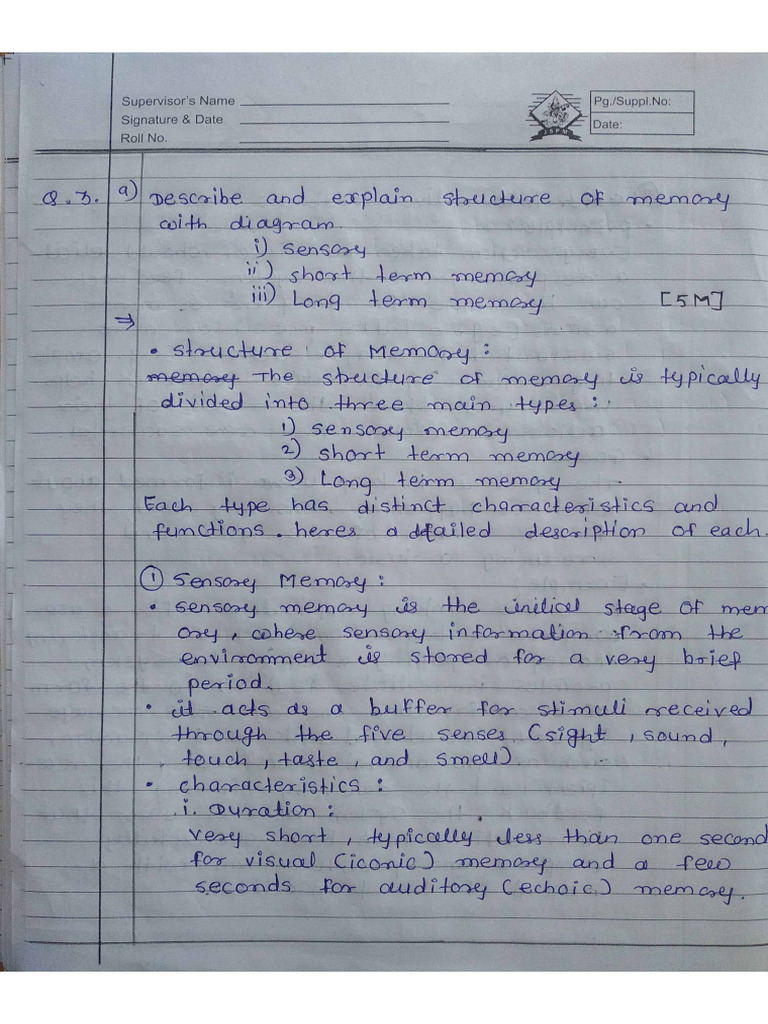 Supervisor's Name
Signature & Date
Roll No.
JSPM
Pg./Suppl.No:
Date:
a) Describe and explain structure of memory
with diagram.
i) sensory
ii) short term memory
iii) Long term memory [5M]
⇒
• structure of Memory:
memory The structure of memory is typically
divided into three main types:
1) sensory memory
2) short term memory
3) Long term memory
Each type has distinct characteristics and
functions. heres a detailed description of each.
① Sensory Memory:
• sensory memory is the initial stage of mem
ory, where sensory information from the
environment is stored for a very brief
period.
• it acts as a buffer for stimuli received
through the five senses (sight, sound,
touch, taste, and smell).
• characteristics:
i. Duration:
very short, typically less than one second
for visual (iconic) memory and a few
seconds for auditory (echoic) memory.